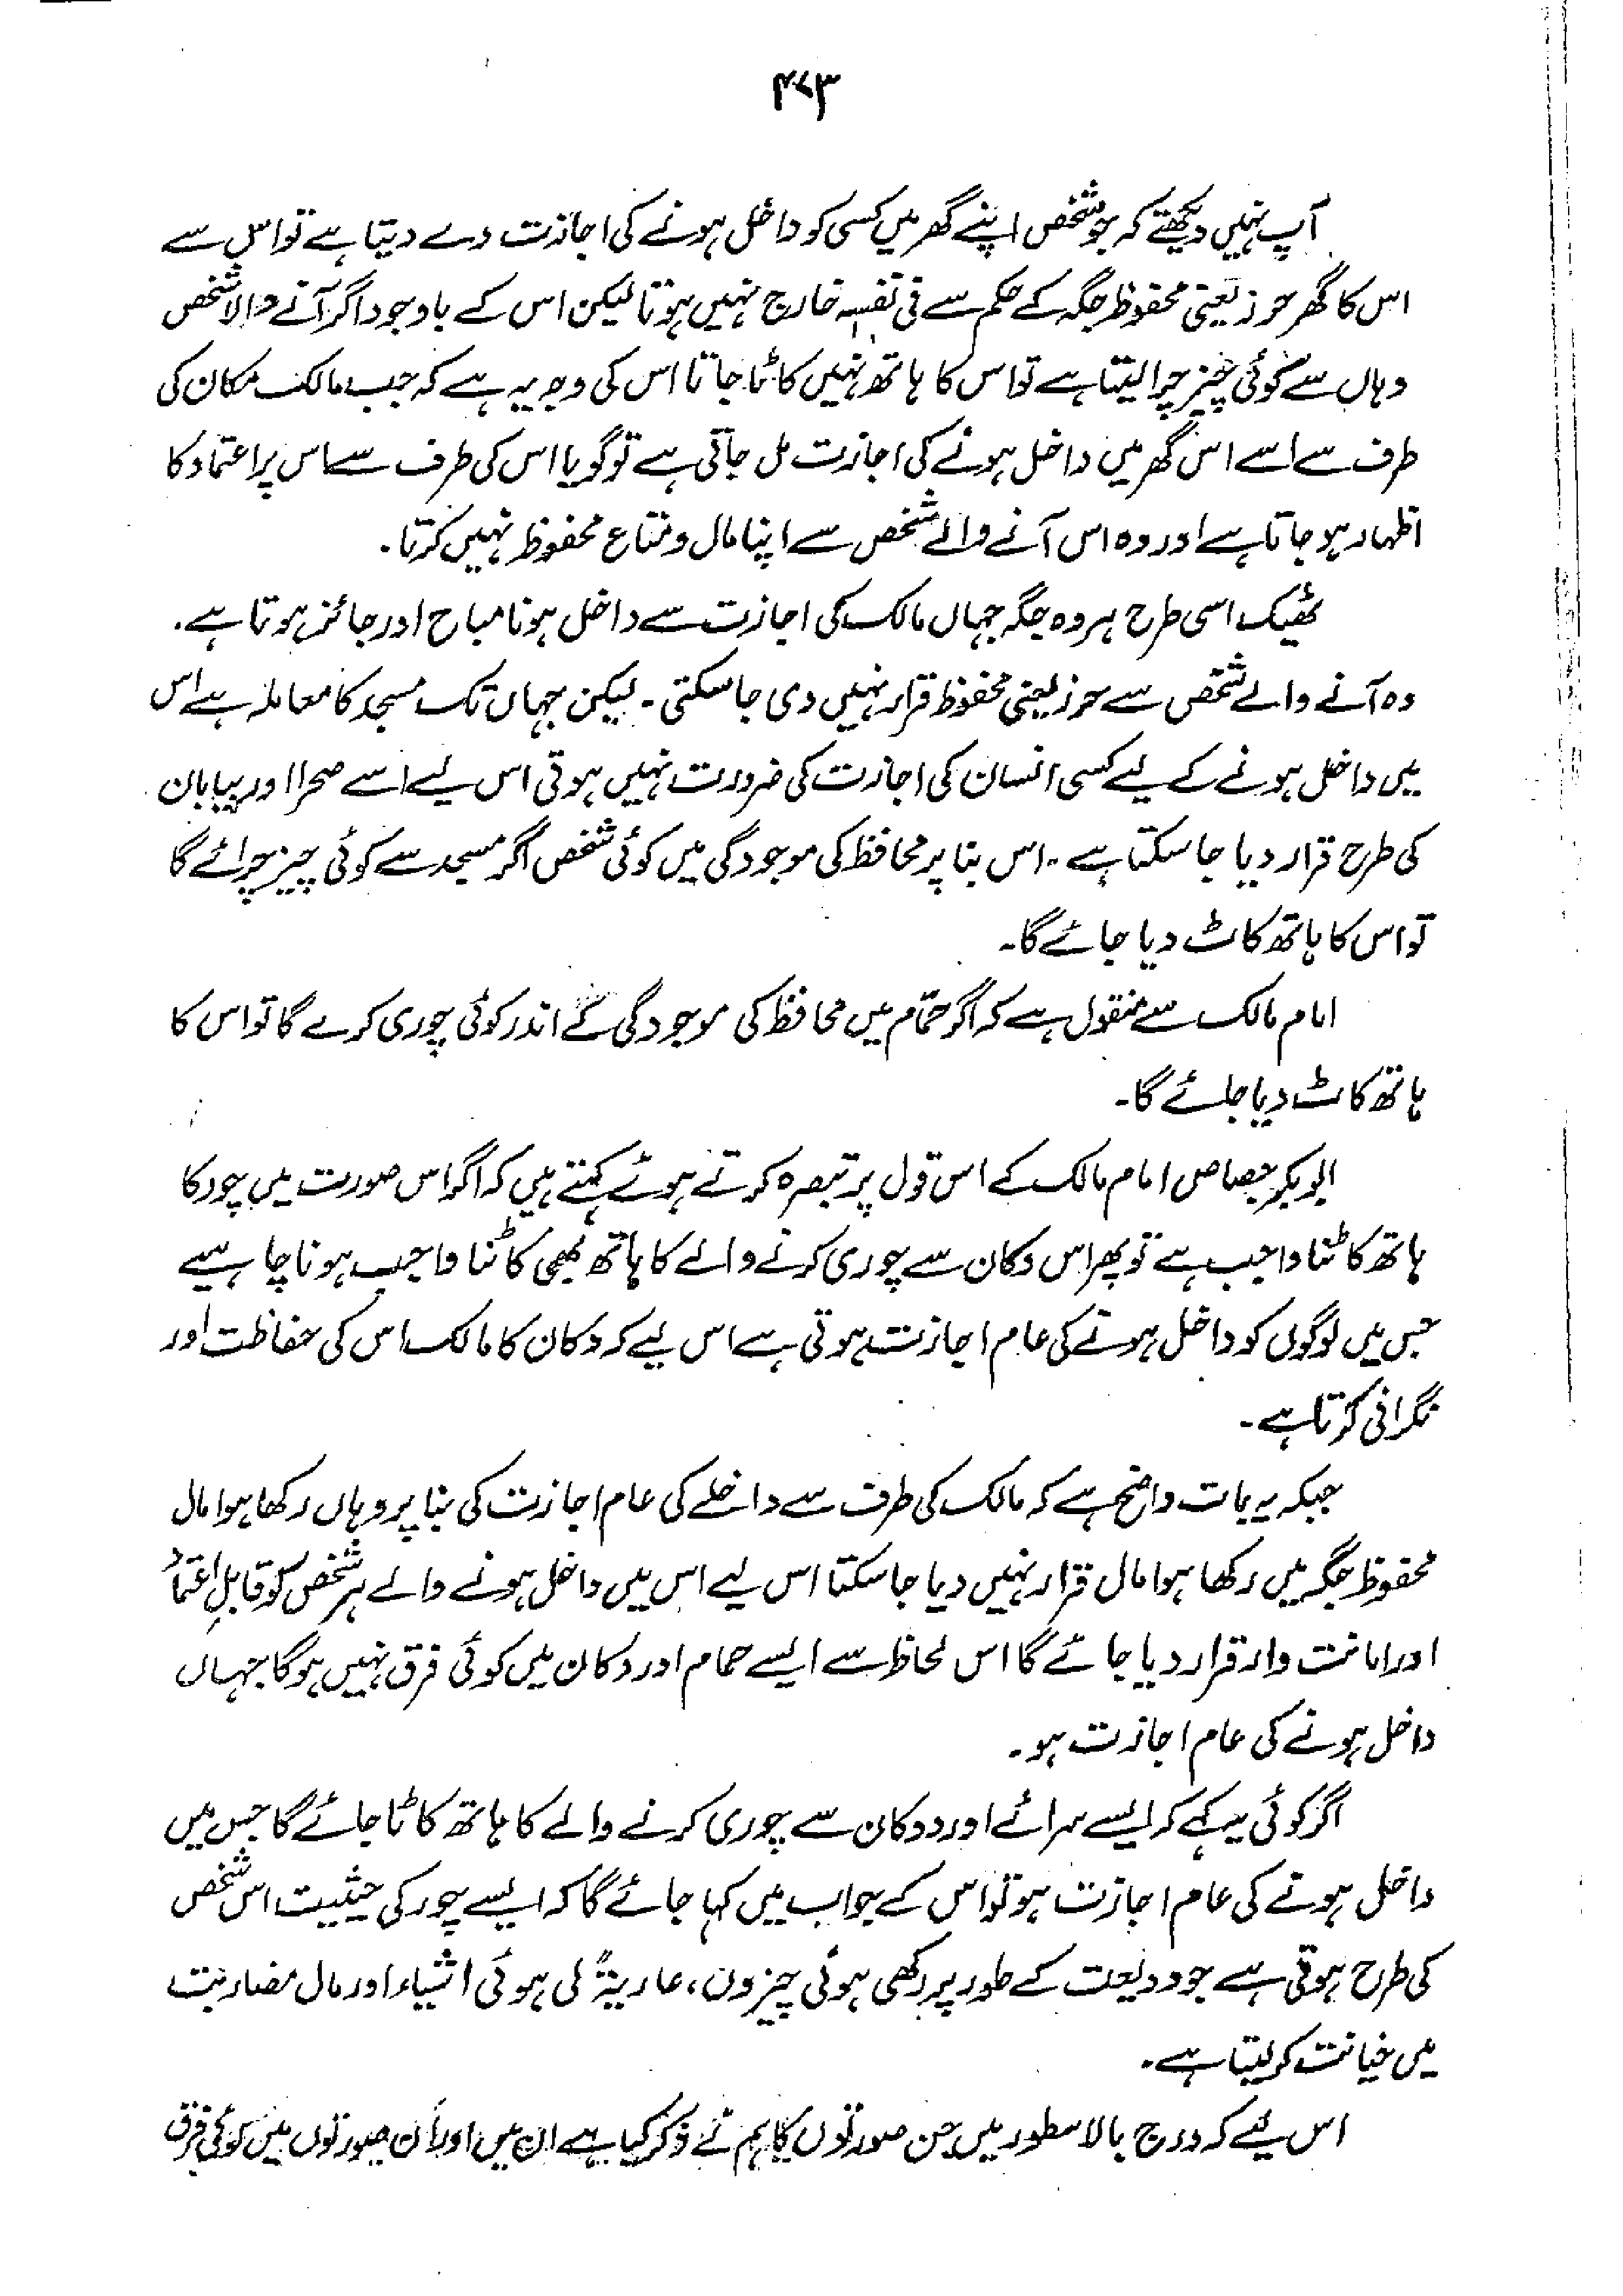 ۴۷۳
آپ نہیں دیکھتے کہ جو شخص اپنے گھر میں کسی کو داخل ہونے کی اجازت دے دیتا ہے تو اس سے
اس کا گھر حرز یعنی محفوظ جگہ کے حکم سے فی نفسہ خارج نہیں ہوتا لیکن اس کے باوجود اگر آنے والا شخص
وہاں سے کوئی چیز چرا لیتا ہے تو اس کا ہاتھ نہیں کاٹا جاتا اس کی وجہ یہ ہے کہ جب مالک مکان کی
طرف سے اسے اس گھر میں داخل ہونے کی اجازت مل جاتی ہے تو گویا اس کی طرف سے اس پر اعتماد کا
اظہار ہو جاتا ہے اور وہ اس آنے والے شخص سے اپنا مال و متاع محفوظ نہیں کرتا۔
ٹھیک اسی طرح ہر وہ جگہ جہاں مالک کی اجازت سے داخل ہونا مباح اور جائز ہوتا ہے۔
وہ آنے والے شخص سے حرز یعنی محفوظ قرار نہیں دی جا سکتی۔ لیکن جہاں تک مسجد کا معاملہ ہے اس
میں داخل ہونے کے لیے کسی انسان کی اجازت کی ضرورت نہیں ہوتی اس لیے اسے صحرا اور بیابان
کی طرح قرار دیا جا سکتا ہے۔ اس بنا پر محافظ کی موجودگی میں کوئی شخص اگر مسجد سے کوئی چیز چرائے گا
تو اس کا ہاتھ کاٹ دیا جائے گا۔
امام مالک سے منقول ہے کہ اگر حمّام میں محافظ کی موجودگی کے اندر کوئی چوری کرے گا تو اس کا
ہاتھ کاٹ دیا جائے گا۔
ابوبکر جصاص امام مالک کے اس قول پر تبصرہ کرتے ہوئے کہتے ہیں کہ اگر اس صورت میں چور کا
ہاتھ کاٹنا واجب ہے تو پھر اس دکان سے چوری کرنے والے کا ہاتھ بھی کاٹنا واجب ہونا چاہیے
جس میں لوگوں کو داخل ہونے کی عام اجازت ہوتی ہے اس لیے کہ دکان کا مالک اس کی حفاظت اور
نگرانی کرتا ہے۔
جبکہ یہ بات واضح ہے کہ مالک کی طرف سے داخلے کی عام اجازت کی بنا پر وہاں رکھا ہوا مال
محفوظ جگہ میں رکھا ہوا مال قرار نہیں دیا جا سکتا اس لیے اس میں داخل ہونے والے ہر شخص کو قابلِ اعتماد
اور امانت دار قرار دیا جائے گا اس لحاظ سے ایسے حمام اور دکان میں کوئی فرق نہیں ہوگا جہاں
داخل ہونے کی عام اجازت ہو۔
اگر کوئی یہ کہے کہ ایسے سرائے اور دوکان سے چوری کرنے والے کا ہاتھ کاٹا جائے گا جس میں
داخل ہونے کی عام اجازت ہو تو اس کے جواب میں کہا جائے گا کہ ایسے چور کی حیثیت اس شخص
کی طرح ہوتی ہے جو ودیعت کے طور پر رکھی ہوئی چیزوں، عاریۃً لی ہوئی اشیاء اور مال مضاربت
میں خیانت کر لیتا ہے۔
اس لئے کہ درج بالا سطور میں جن صورتوں کا ہم نے ذکر کیا ہے ان میں اور اُن صورتوں میں کوئی فرق